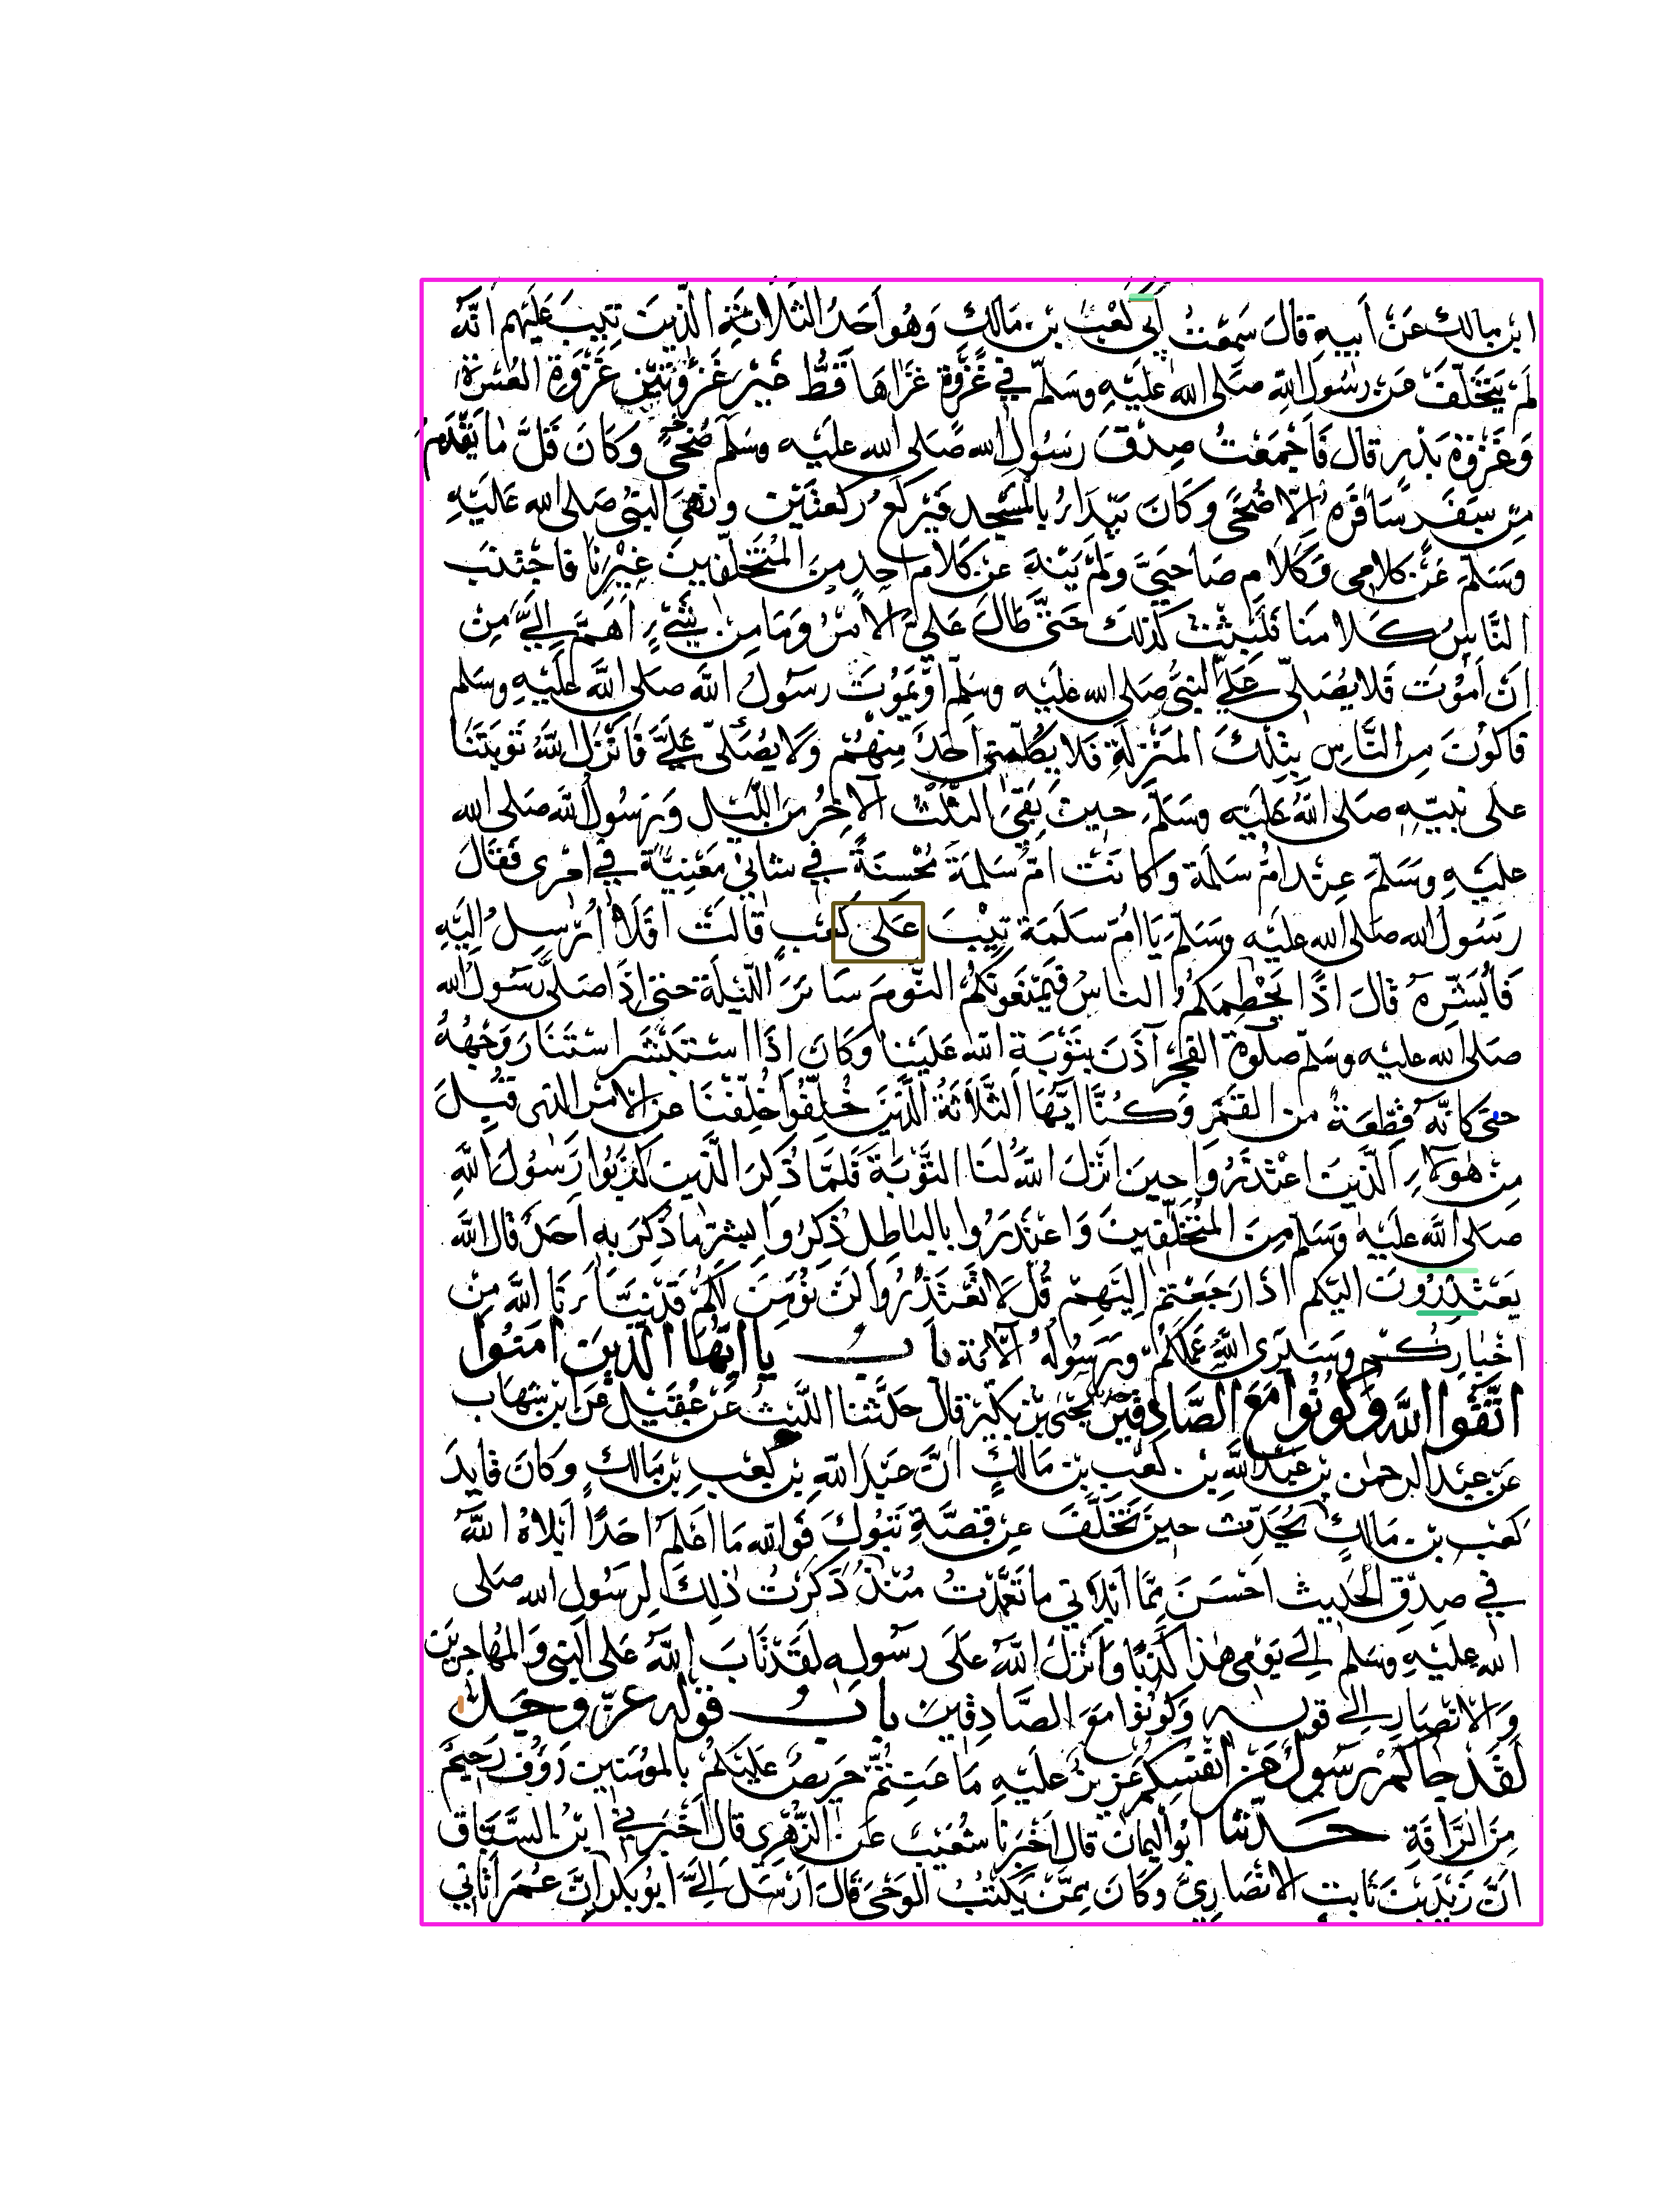 ابن مالك عَنْ أَبِيهِ قَالَ سَمِعْتُ أَبِي كَعْبَ بن مَالِكٍ وَهُوَ أَحَدُ الثَّلَاثَةِ الَّذِينَ تِيبَ عَلَيْهِم أَنَّهُ
لَمْ يَتَخَلَّفْ عَن رَسُولِ اللهِ صلى الله عَلَيْهِ وسَلم في غَزْوَةٍ غَزَاهَا قَطُّ غَيْرَ غَزْوَتَيْنِ غَزْوَةِ العُسْرَةِ
وَغَزْوَةِ بَدْرٍ قال فَأَجْمَعْتُ صِدْقَ رَسُولِ الله صَلى الله عليه وسلم ضُحًى وَكَانَ قَلَّ مَا يَقْدَمُ
مِن سَفَرٍ سَافَرَهُ إِلَّا ضُحًى وَكَانَ يَبْدَأُ بِالمَسْجِدِ فَيَرْكَعُ رَكْعَتَيْنِ وَنَهَى النبيُّ صَلى الله عَلَيْهِ
وَسَلَّمَ عَنْ كَلَامِي وَكَلَامِ صَاحِبَيَّ وَلَمْ يَنْهَ عَن كَلَامِ أَحَدٍ مِنَ المُتَخَلِّفِينَ غَيْرِنَا فَاجْتَنَبَ
النَّاسُ كَلَامَنَا فَلَبِثْتُ كَذلِكَ حَتَّى طَالَ عَلَيَّ الأَمْرُ وَمَا مِن شَيْءٍ أَهَمَّ إِلَيَّ مِن
أَنْ أَمُوتَ فَلَا يُصَلِّي عَلَيَّ النبيُّ صَلى الله عَلَيْه وسَلم أَوْ يَمُوتَ رَسُولُ اللهِ صَلى الله عَلَيْهِ وَسَلم
فَأَكُونَ مِنَ النَّاسِ بِتِلْكَ المَنْزِلَةِ فَلَا يُكَلِّمُنِي أَحَدٌ مِنْهُمْ وَلَا يُصَلِّي عَلَيَّ فَأَنْزَلَ اللهُ تَوْبَتَنَا
عَلَى نَبِيِّهِ صَلى اللهُ عَلَيْه وسَلَّمَ حِينَ بَقِيَ الثُّلُثُ الآخِرُ مِنَ اللَّيْلِ وَرَسُولُ اللهِ صَلى الله
عليه وسَلَّمَ عِنْدَ أُمِّ سَلَمَةَ وكَانَتْ أُمُّ سَلَمَةَ مُحْسِنَةً في شَأْنِي مَعْنِيَّةً فِي أَمْرِي فَقَالَ
رَسُولُ الله صَلى الله عَلَيْه وَسَلَّمَ يَا أُمَّ سَلَمَةَ تِيْبَ عَلَى كَعْبٍ قَالَتْ أَفَلَا أُرْسِلُ إِلَيْهِ
فَأُبَشِّرُهُ قَالَ إِذًا يَحْطِمَكُمُ النَّاسُ فَيَمْنَعُونَكُمُ النَّوْمَ سَائِرَ اللَّيْلَةِ حَتى إِذَا صَلى رَسُولُ الله
صَلى الله عليه وسَلم صَلَوةَ الفَجْرِ آذَنَ بِتَوْبَةِ اللهِ عَلَيْنَا وَكَانَ إِذَا اسْتَبْشَرَ اسْتَنَارَ وَجْهُهُ
حتى كَأَنَّهُ قِطْعَةٌ مِنَ القَمَرِ وَكُنَّا أَيُّهَا الثَّلَاثَةُ الَّذِينَ خُلِّفُوا خُلِّفْنَا عَنِ الأَمْرِ الذى قُبِلَ
مِنْ هَؤُلَاءِ الَّذِينَ اعْتَذَرُوا حِينَ أَنْزَلَ اللهُ لَنَا التَّوْبَةَ فَلَمَّا ذُكِرَ الَّذِينَ كَذَبُوا رَسُولَ اللهِ
صَلى اللهُ عَلَيْهِ وَسَلم مِنَ المُتَخَلِّفِينَ وَاعْتَذَرُوا بِالبَاطِلِ ذُكِرُوا بِشَرِّ مَا ذُكِرَ بِهِ أَحَدٌ قَالَ اللهُ
يَعْتَذِرُونَ إِلَيْكم إِذَا رَجَعْتُمْ إِلَيْهِمْ قُل لَا تَعْتَذِرُوا لَنْ نُؤْمِنَ لَكُمْ قَدْ نَبَّأَنَا اللهُ مِنْ
أَخْبَارِكُمْ وَسَيَرَى اللهُ عَمَلَكُمْ وَرَسُولُهُ الآيَة بَابُ يَا أَيُّهَا الَّذِينَ آمَنُوا
اتَّقُوا اللهَ وَكُونُوا مَعَ الصَّادِقِينَ يَحْيَى بْنُ بُكَيْرٍ قال حَدَّثَنَا اللَّيْثُ عَنْ عُقَيْلٍ عَنِ ابْنِ شِهَابٍ
عَن عَبْدِ الرحمن بْنِ عَبْدِ اللهِ بْنِ كَعْبِ بْنِ مَالِكٍ أَنَّ عَبْدَ اللهِ بْنَ كَعْبِ بْنِ مَالِكٍ وَكَانَ قَايِدَ
كَعْبِ بْنِ مَالِكٍ يُحَدِّثُ حِينَ تَخَلَّفَ عَن قِصَّةِ تَبُوكَ فَوَاللهِ مَا أَعْلَمُ أَحَدًا أَبْلَاهُ اللهُ
في صِدْقِ الحَدِيثِ أَحْسَنَ مِمَّا أَبْلَانِي مَا تَعَمَّدْتُ مُنْذُ ذَكَرْتُ ذَلِكَ لِرَسُولِ الله صَلى
الله عَلَيْهِ وسَلم إِلَى يَوْمِي هَذَا كَذِبًا وَأَنْزَلَ اللهُ عَلَى رَسُولِهِ لَقَدْ تَابَ اللهُ عَلَى النبي وَالمُهَاجِرِينَ
وَالأَنْصَارِ إِلَى قوله وَكُونُوا مَعَ الصَّادِقِينَ بَابُ قَوْلِه عزّ وجَلّ
لَقَدْ جَاكُمْ رَسُولٌ مِنْ أَنْفُسِكُمْ عَزِيزٌ عَلَيْهِ مَا عَنِتُّمْ حَرِيصٌ عَلَيْكُمْ بِالمُؤْمِنِينَ رَؤُفٌ رَحِيمٌ
مِنَ الرَّأْفَةِ حَدَّثَنَا أَبُو اليَمَانِ قال أَخْبَرَنَا شُعَيْبٌ عَنِ الزُّهْرِي قَالَ أَخْبَرَنِي ابْنُ السَّبَّاقِ
أَنَّ زَيْدَ بْنَ ثَابِتٍ الأَنْصَارِيَّ وَكَانَ مِمَّنْ يَكْتُبُ الوَحْيَ قَالَ أَرْسَلَ إِلَيَّ أَبُو بَكْرٍ إِنَّ عُمَرَ أَتَانِي